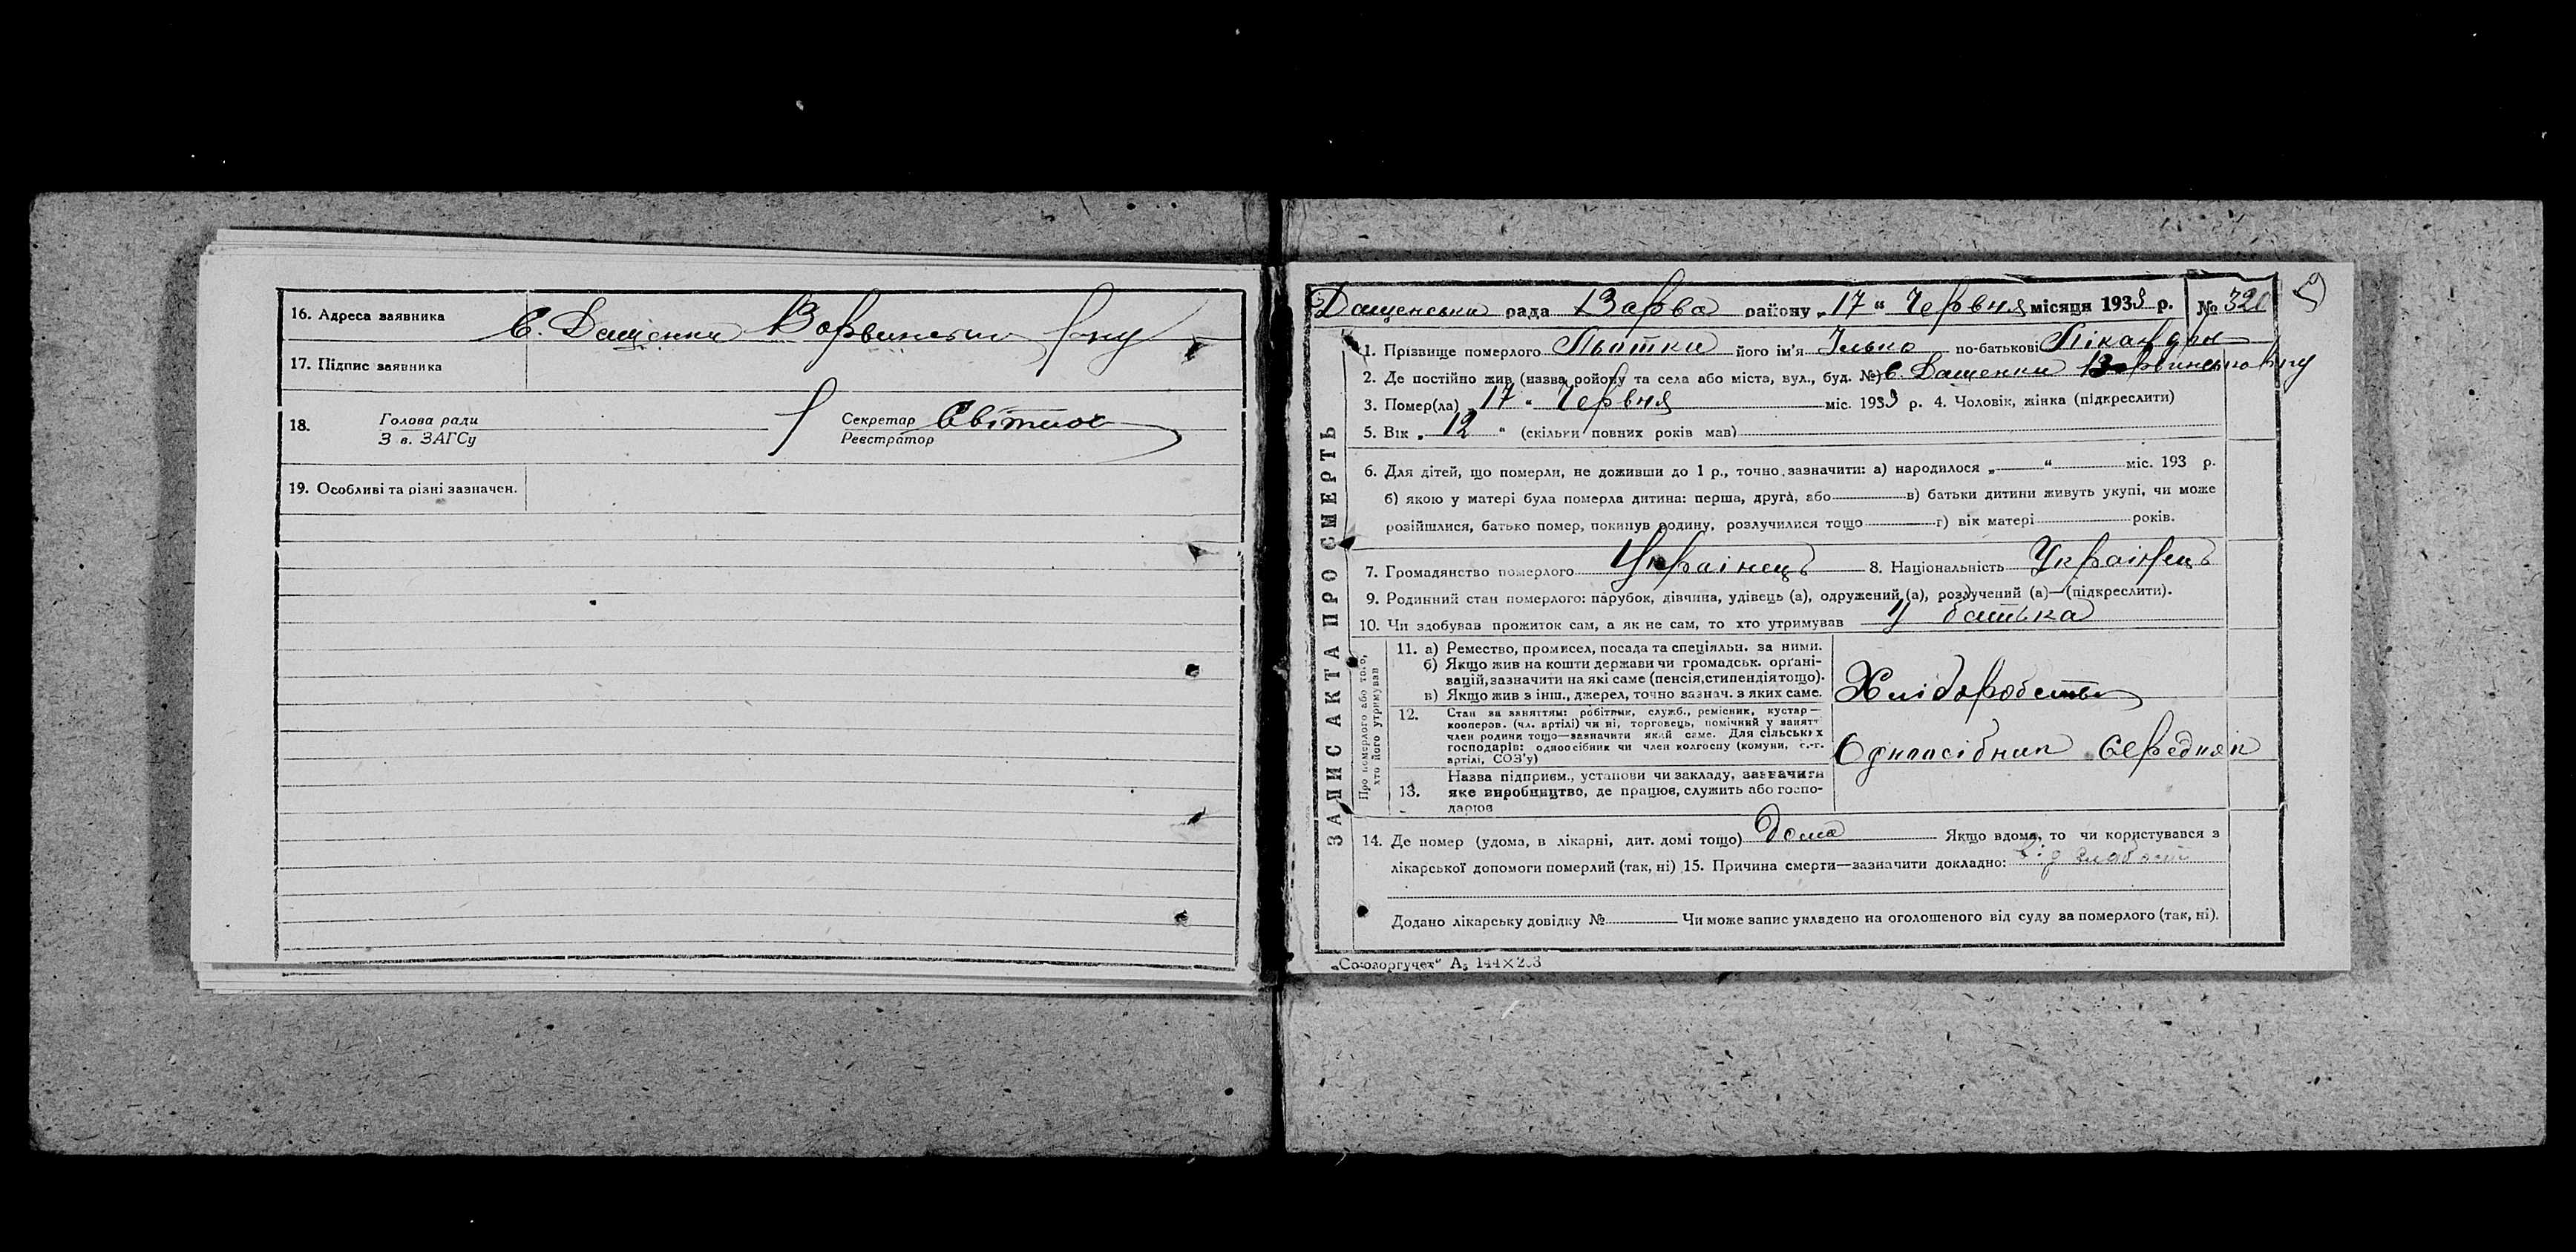 16. Адреса заявника с. Дащенки Варвинськ р-ну
17. Підпис заявника
18. Голова ради
З в. ЗАГСу
Секретар
Реєстратор
19. Особливі та різні зазначен.
Дащенська рада Варва району „17“ Червня місяця 1933 р. № 320
ЗАПИС АКТА ПРО СМЕРТЬ
1. Прізвище померлого його ім'я Ілько по-батькові
2. Де постійно жив (назва ройону та села або міста, вул., буд. №) с. Дащенки Варвинського р-ну
3. Помер(ла) 17 " Червня міс. 1933 р. 4. Чоловік, жінка (підкреслити)
5. Вік „ 12 " (скільки повних років мав)
6. Для дітей, що померли, не доживши до 1 р., точно зазначити: а) народилося „ “ міс. 193 р.
б) якою у матері була померла дитина: перша, друга, або в) батьки дитини живуть укупі, чи може
розійшлися, батько помер, покинув родину, розлучилися тощо г) вік матері років.
7. Громадянство померлого Українець 8. Національність Українець
9. Родинний стан померлого: парубок, дівчина, удівець (а), одружений (а), розлучений (а)—(підкреслити).
10. Чи здобував прожиток сам, а як не сам, то хто утримував у батька
Про померлого або того,
хто його утримував
11. а) Ремество, промисел, посада та спеціяльн. за ними.
б) Якщо жив на кошти держави чи громадськ. орґані-
вацій, зазначити на які саме (пенсія, стипендія тощо).
в) Якщо жив з інш., джерел, точно зазнач. з яких саме.
Хліборобство
12. Стан за заняттям: робітник, служб., ремісник, кустар—
кооперов. (чл. артілі) чи ні, торговець, помічний у занятт
член родини тощо—зазначити який саме. Для сільських
господарів: одноосібник чи член колгоспу (комуни, с.-г.
артілі, СОЗ'у)
Одноосібник Середняк
13. Назва підприєм., установи чи закладу, зазначити
яке виробництво, де працює, служить або госпо-
дарює
14. Де помер (удома, в лікарні, дит. домі тощо) дома Якщо вдома, то чи користувався з
лікарської допомоги померлий (так, ні) 15. Причина смерти—зазначити докладно:
Додано лікарську довідку № Чи може запис укладено на оголошеного від суду за померлого (так, ні).
„Союзоргучет“ А₅ 144×203